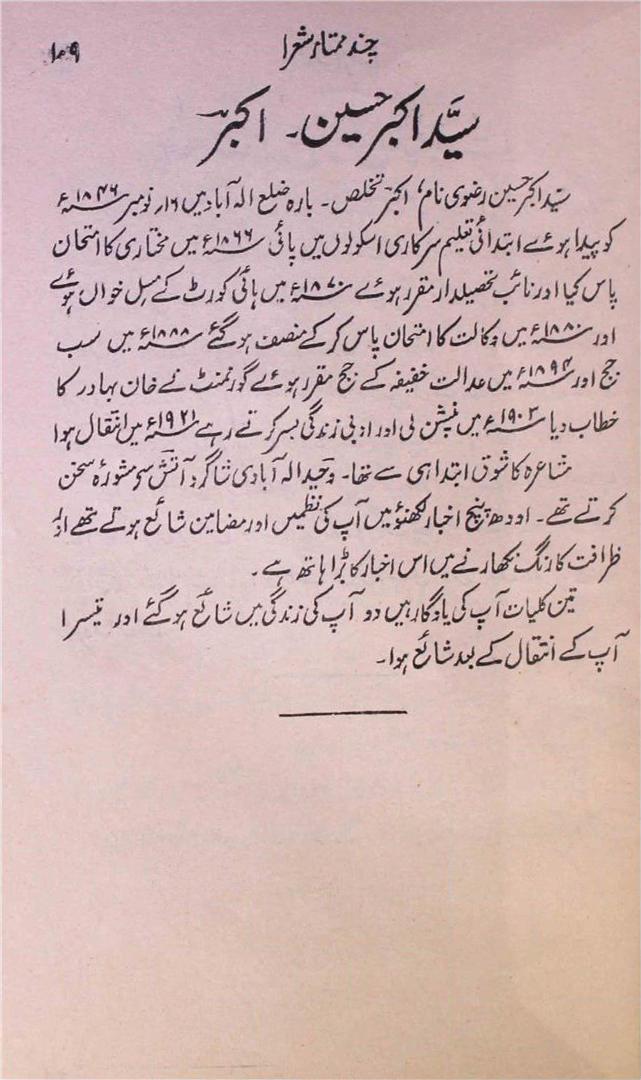 چند ممتاز شعرا
۱۰۹
سیّد اکبر حسین ۔ اکبرؔ
سیّد اکبر حسین رضوی نام، اکبرؔ تخلص ۔ بارہ ضلع الہ آباد میں ۱۶؍ نومبر ۱۸۴۶ء
کو پیدا ہوئے ابتدائی تعلیم سرکاری اسکولوں میں پائی ۱۸۶۶ء میں مختاری کا امتحان
پاس کیا اور نائب تحصیلدار مقرر ہوئے ۱۸۷۰ء میں ہائی کورٹ کے مسل خواں ہوئے
اور ۱۸۸۰ء میں وکالت کا امتحان پاس کر کے منصف ہو گئے ۱۸۸۸ء میں سب
جج اور ۱۸۹۴ء میں عدالت خفیفہ کے جج مقرر ہوئے گورنمنٹ نے خان بہادر کا
خطاب دیا ۱۹۰۳ء میں پنشن لی اور ادبی زندگی بسر کرتے رہے ۱۹۲۱ء میں انتقال ہوا
شاعرہ کا شوق ابتدا ہی سے تھا۔ وحید الہ آبادی شاگرد آتش سے مشورۂ سخن
کرتے تھے ۔ اودھ پنچ اخبار لکھنؤ میں آپ کی نظمیں اور مضامین شائع ہوتے تھے اور
ظرافت کا رنگ نکھارنے میں اس اخبار کا بڑا ہاتھ ہے ۔
تین کلیات آپ کی یادگار ہیں دو آپ کی زندگی میں شائع ہو گئے اور تیسرا
آپ کے انتقال کے بعد شائع ہوا۔